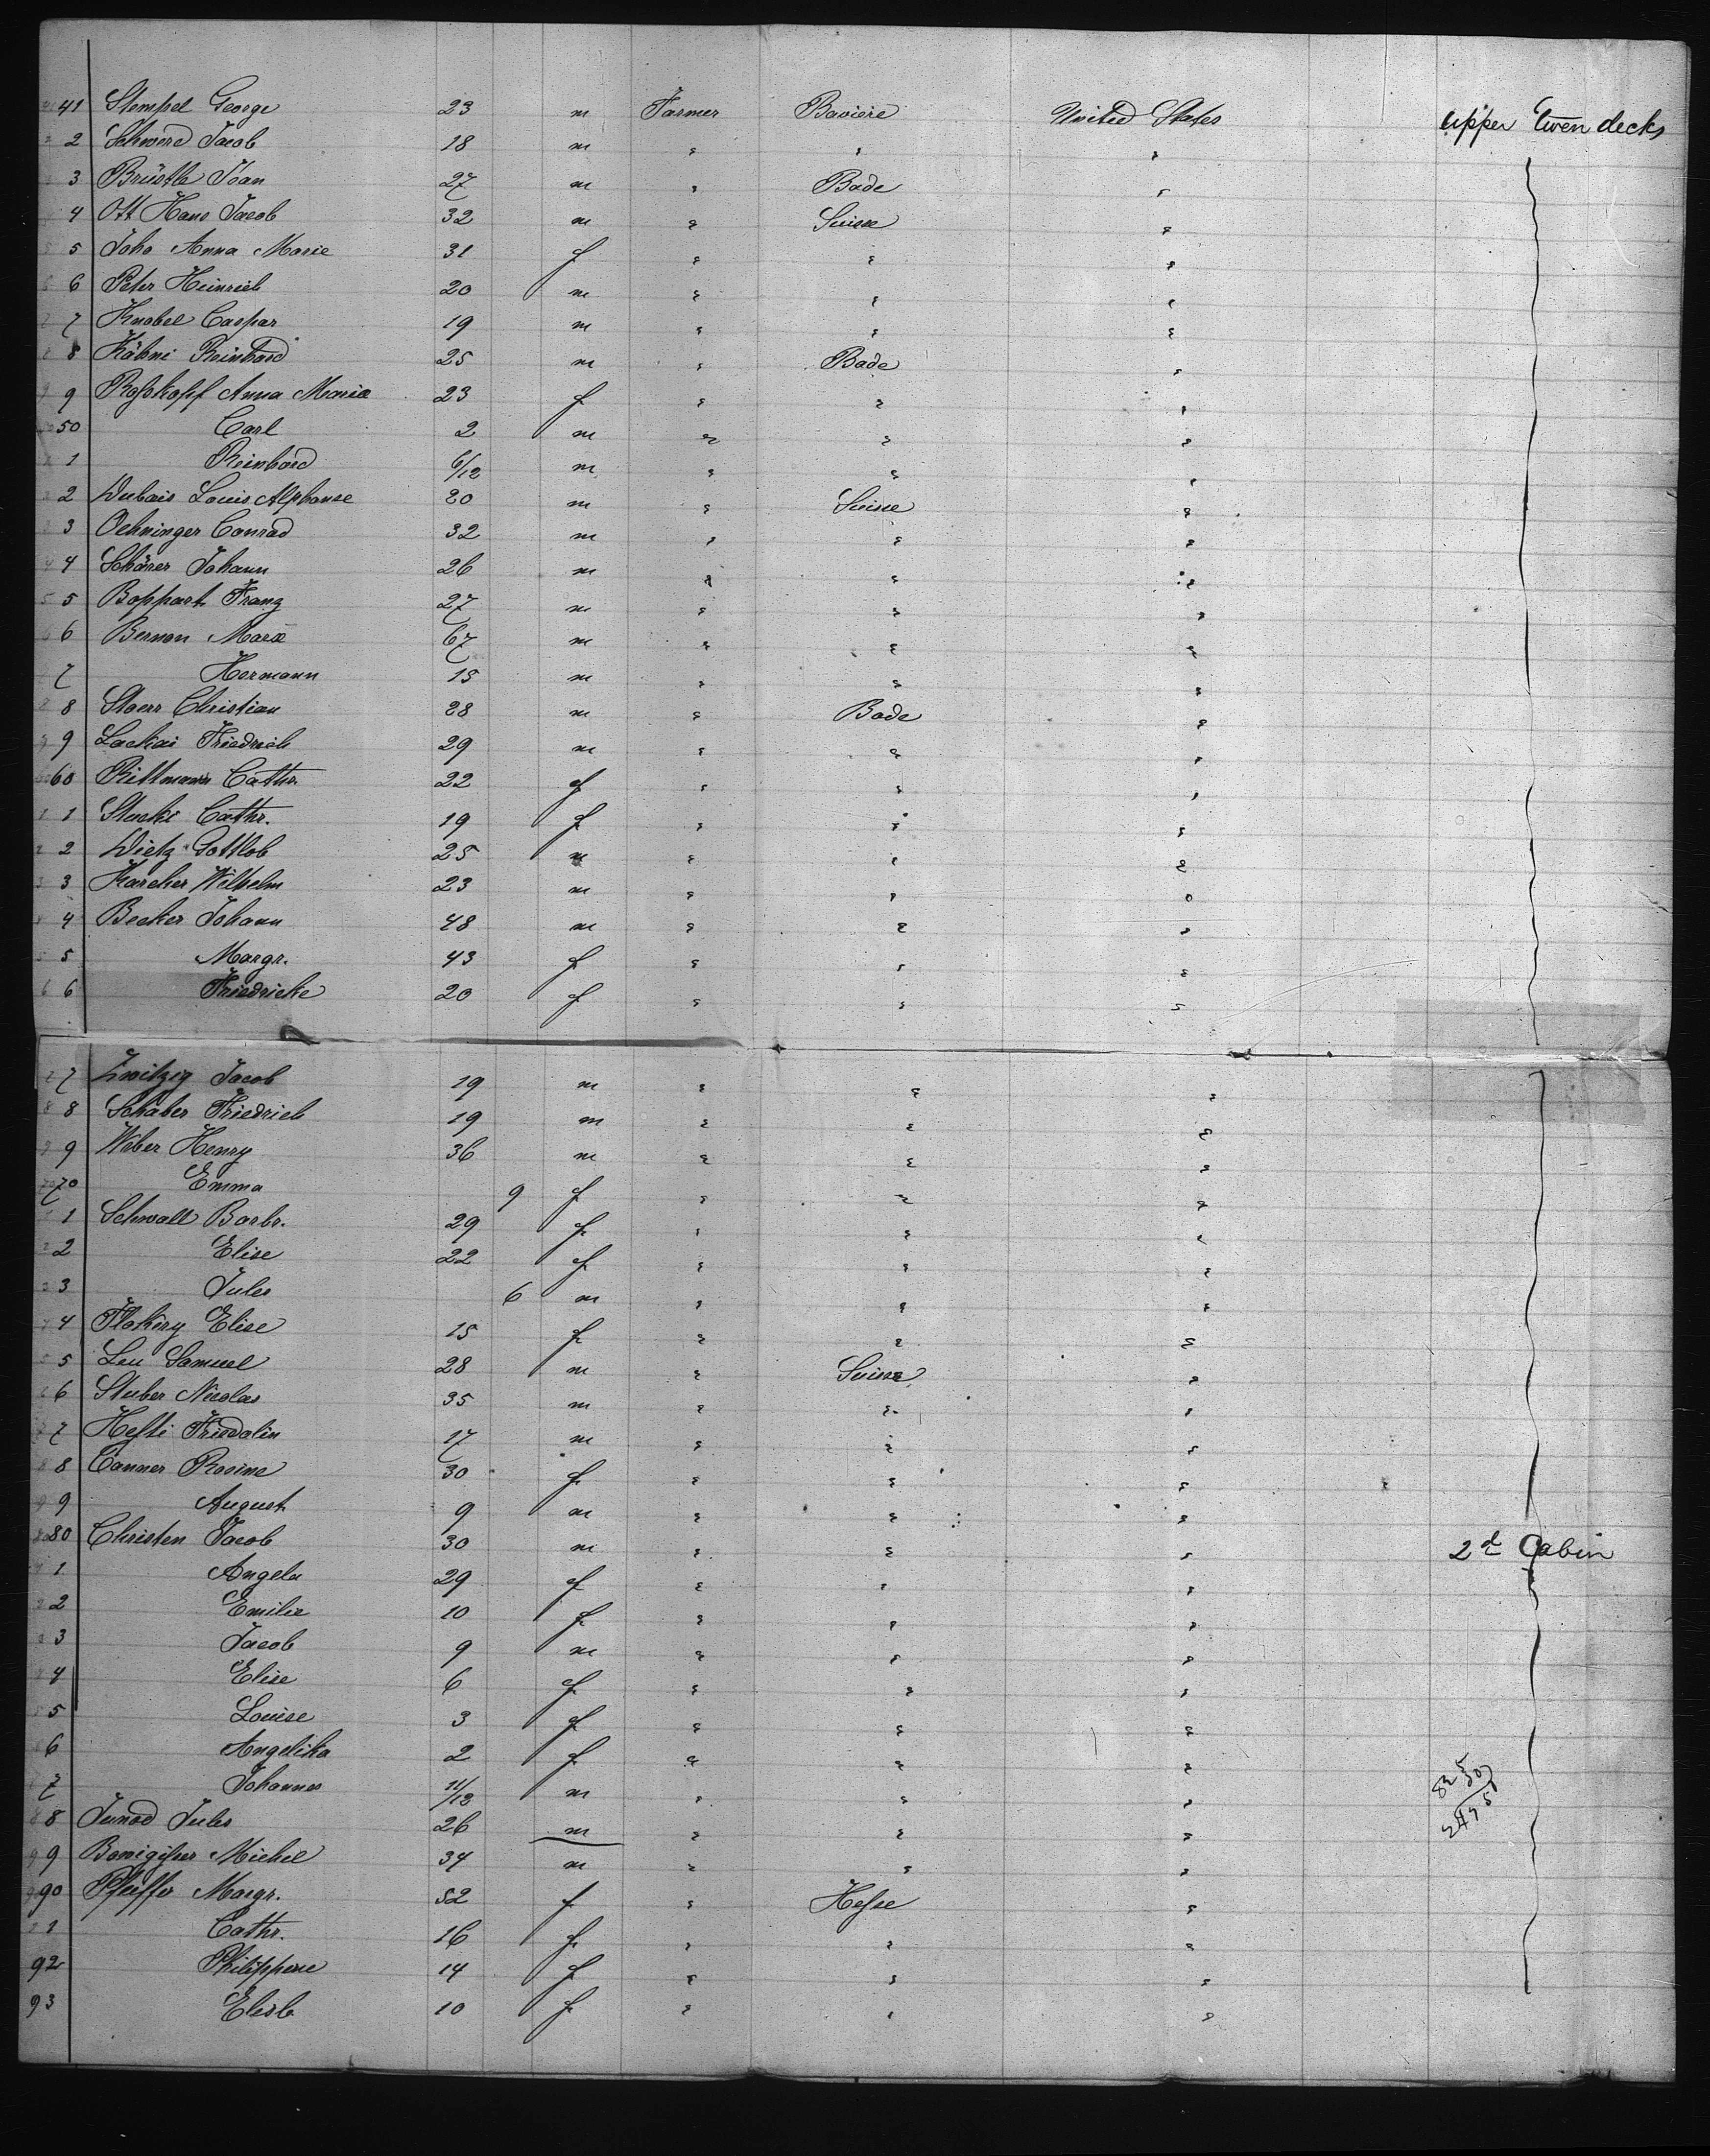 41 Stempel George 23 m Farmer Bavière United States upper twen decks
2 Schwerd Jacob 18 m " " "
3 Brüstle Joan 27 m " Bade "
4 Ott Hans Jacob 32 m " Suisse "
5 Joho Anna Marie 31 f " " "
6 Peter Heinrich 20 m " " "
7 Knobel Caspar 19 m " " "
8 Kähni Reinhard 25 m " Bade "
9 Roßkopf Anna Maria 23 f " " "
50 Carl 2 m " " "
1 Reinhard 6/12 m " " "
2 Dubois Louis Alphonse 20 m " Suisse "
3 Oehninger Conrad 32 m " " "
4 Schärer Johann 26 m " " "
5 Boppart Franz 27 m " " "
6 Bernon 67 m " " "
7 Hermann 15 m " " "
8 Stoerr Christian 28 m " Bade "
9 Lackai Friedrich 29 m " " "
60 Rittmann Cathr. 22 f " " "
1 Stucki Cathr. 19 f " " "
2 Dietz Gottlob 25 m " " "
3 Karcher Wilhelm 23 m " " "
4 Becker Johann 48 m " " "
5 Margr. 43 f " " "
6 Friedricke 20 f " " "
7 Zwitzig Jacob 19 m " " "
8 Schaber Friedrich 19 m " " "
9 Weber Henry 36 m " " "
70 Emma 9 f " " "
1 Schwall Barbr. 29 f " " "
2 Elise 22 f " " "
3 Jules 6 m " " "
4 Elise 15 f " " "
5 Leu Samuel 28 m " Suisse "
6 Stuber Nicolas 35 m " " "
7 Hefti Fridolin 17 m " " "
8 Canner Rosine 30 f " " "
9 August 9 m " " "
80 Christen Jacob 30 m " " " 2d Cabin
1 Angela 29 f " " "
2 Emilie 10 f " " "
3 Jacob 9 m " " "
4 Elise 6 f " " "
5 Louise 3 f " " "
6 Angelika 2 f " " "
7 Johannes 11/12 m " " "
8 Junod Jules 26 m " " "
9 Michel 34 m " " "
90 Pfeiffer Margr. 52 f " Hesse "
1 Cathr. 16 f " " "
92 Philippene 14 f " " "
93 Elisb. 10 f " " "